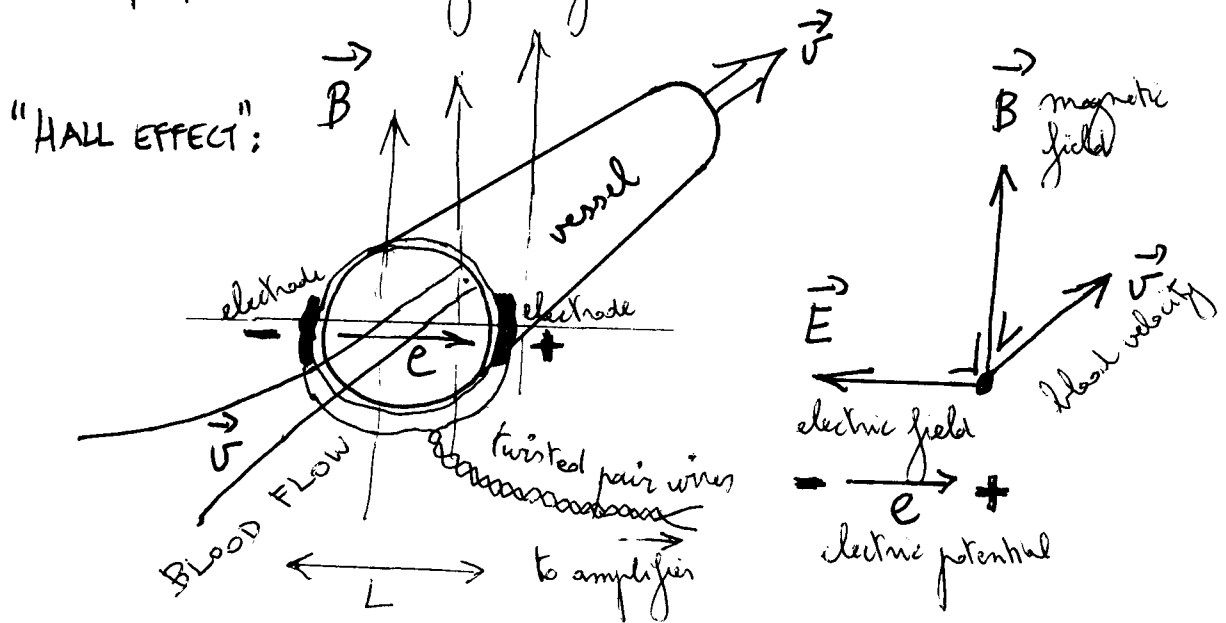 "HALL EFFECT":
B
v
vessel
electrode
electrode
-
e
+
v
BLOOD FLOW
twisted pair wires
to amplifier
L
B magnetic field
E
v
blood velocity
electric field
- e +
electric potential